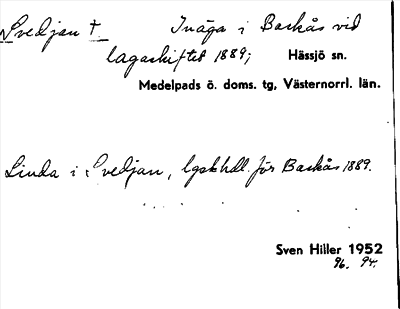 Svedjan † Inäga i Backås vid
lagaskiftet 1889; Hässjö sn.
Medelpads ö. doms. tg, Västernorrl. län.
Linda i Svedjan, lgskhdl. för Backås 1889.
Sven Hiller 1952
96. 94.